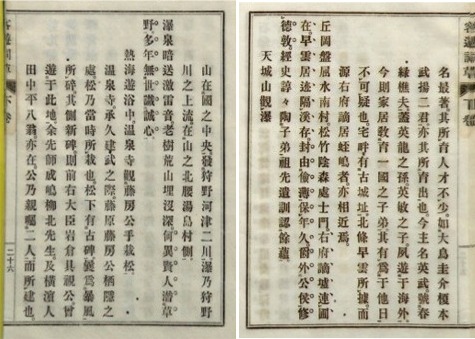 名最著其所育人才不少如大鳥圭介榎本
武揚二君亦其所育出也今主名英武號春
緑樵夫蓋英龍之孫英敏之子夙遊于海外
今則家居教育一國之子弟其有爲于他日
不可疑也宅畔有古城址北條早雲所據而
源右府謫居蛭嶋者亦相近焉
丘岡盤屈水南村松竹陰森處士門右府謫墟連圃
在早雲居迹隔溪存封由偷薄保年久爵外公侯修
德敦經史諄々陶子弟祖先遺訓認餘蘊
天城山觀瀑
山在國之中央發狩野河津二川瀑乃狩野
川之上流在山之北腰湯島村側
瀑泉暗送激雷音老樹荒山埋沒深何異賢人潜草
野多年無世識誠心
熱海遊浴中温泉寺觀藤房公手栽松
温泉寺承久建武之際藤原藤房公栖隱之
處松乃當時所栽也松下有古碑曩爲暴風
所碎其側新碑則前右大臣岩倉具視公曾
遊于此地余先師成嶋柳北先生及横濱人
田中平八翁亦在公乃親囑二人而所建也
二十六